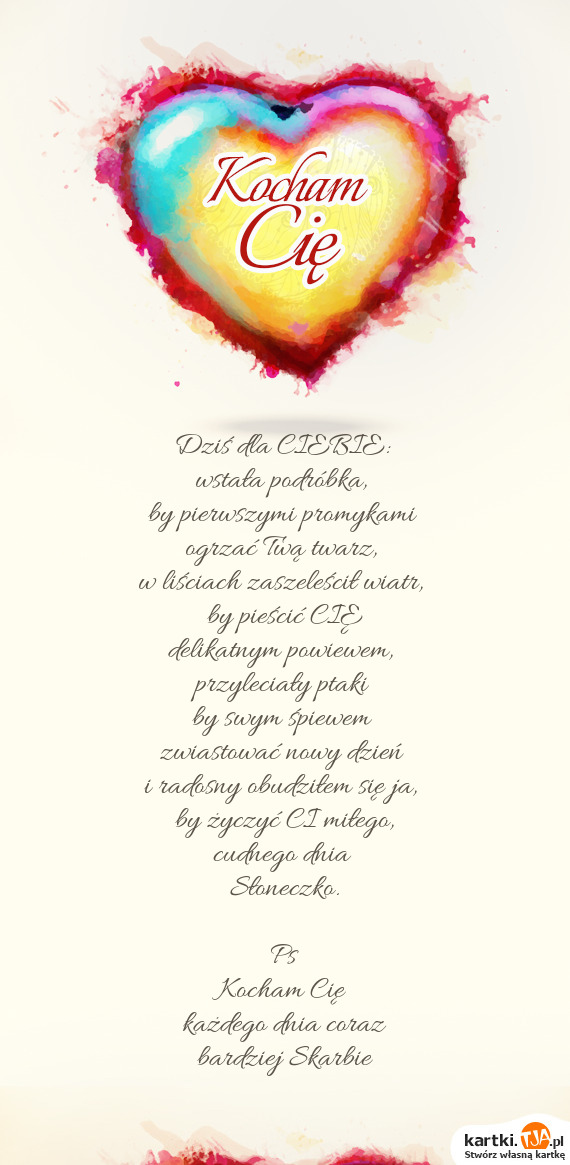 Kocham
Cię
Dziś dla CIEBIE:
wstała podróbka,
by pierwszymi promykami
ogrzać Twą twarz,
w liściach zaszeleścił wiatr,
by pieścić CIĘ
delikatnym powiewem,
przyleciały ptaki
by swym śpiewem
zwiastować nowy dzień
i radosny obudziłem się ja,
by życzyć CI miłego,
cudnego dnia
Słoneczko.
Ps
Kocham Cię
każdego dnia coraz
bardziej Skarbie
kartki.TJA.pl
Stwórz własną kartkę